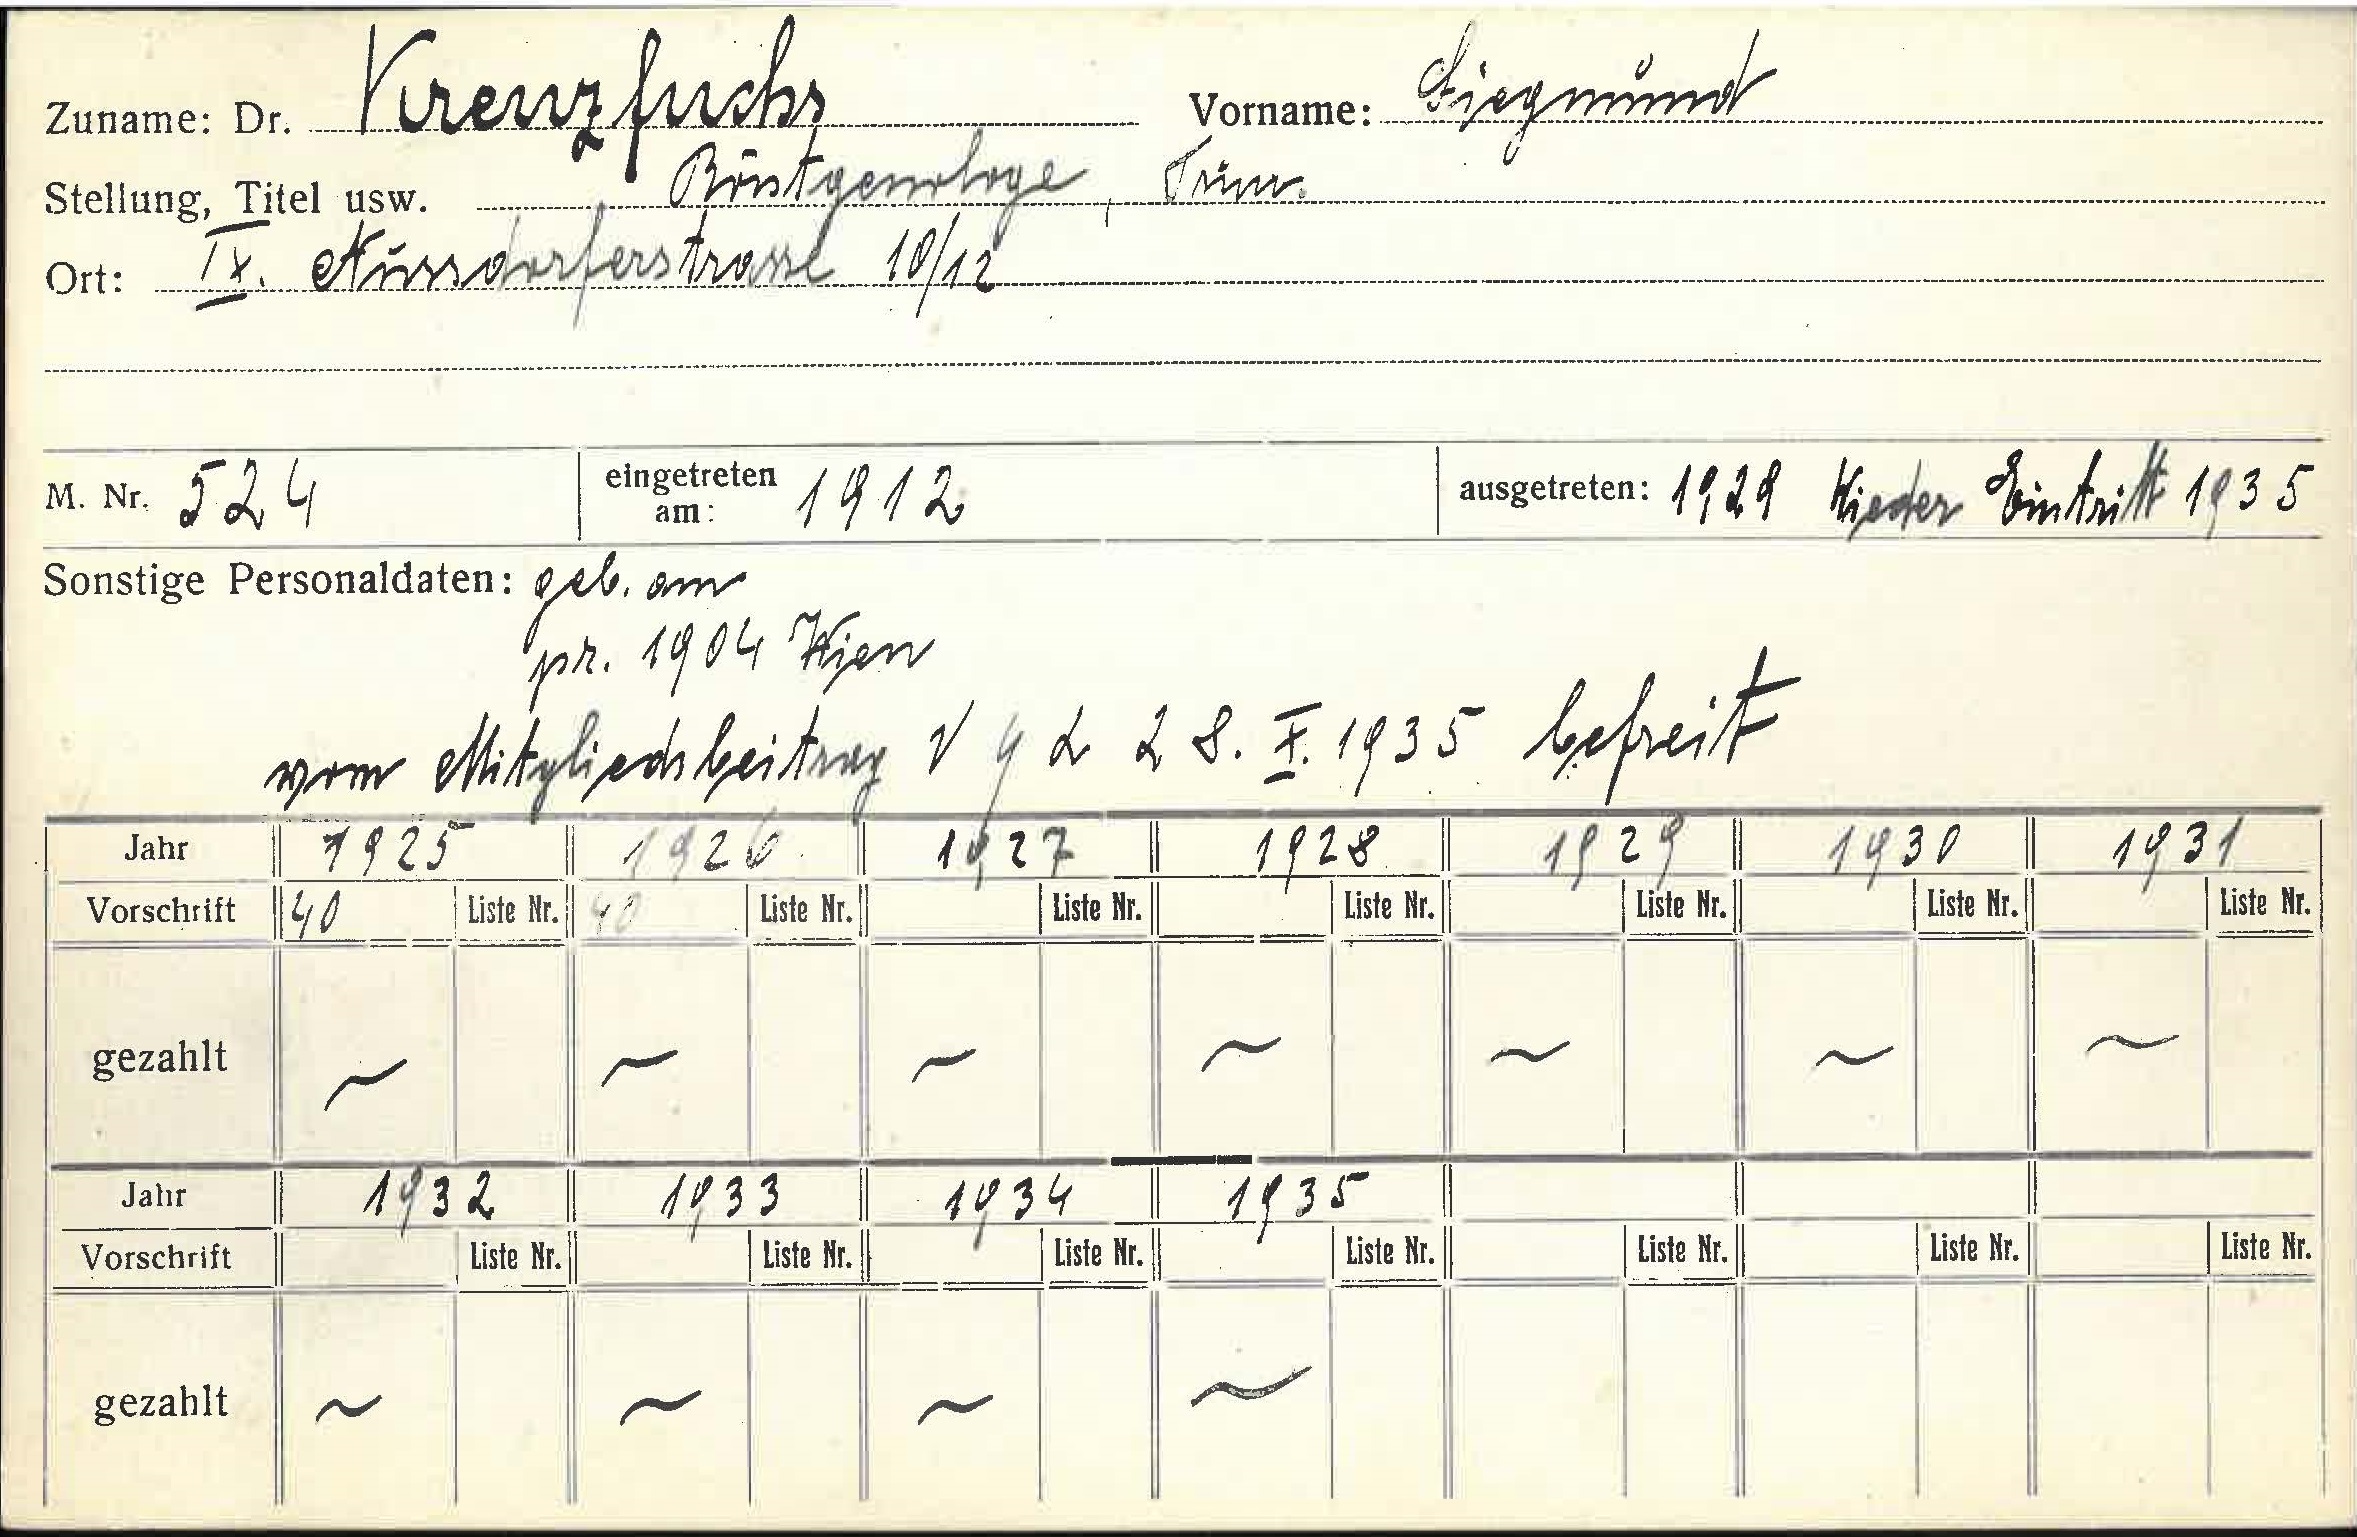 Zuname: Dr. Kreuzfuchs Vorname: Siegmund
Stellung, Titel usw. Röntgenologe,
Ort: IX. Nussdorferstrasse 10/12
M. Nr. 524 eingetreten am: 1912 ausgetreten: 1929 Wieder Eintritt 1935
Sonstige Personaldaten: geb. am
pr. 1904 Wien
vom Mitgliedsbeitrag 28. X. 1935 befreit
Jahr 1925 1926 1927 1928 1929 1930 1931
Vorschrift 40 Liste Nr. 40 Liste Nr. Liste Nr. Liste Nr. Liste Nr. Liste Nr. Liste Nr.
gezahlt ~ ~ ~ ~ ~ ~ ~
Jahr 1932 1933 1934 1935
Vorschrift Liste Nr. Liste Nr. Liste Nr. Liste Nr. Liste Nr. Liste Nr. Liste Nr.
gezahlt ~ ~ ~ ~